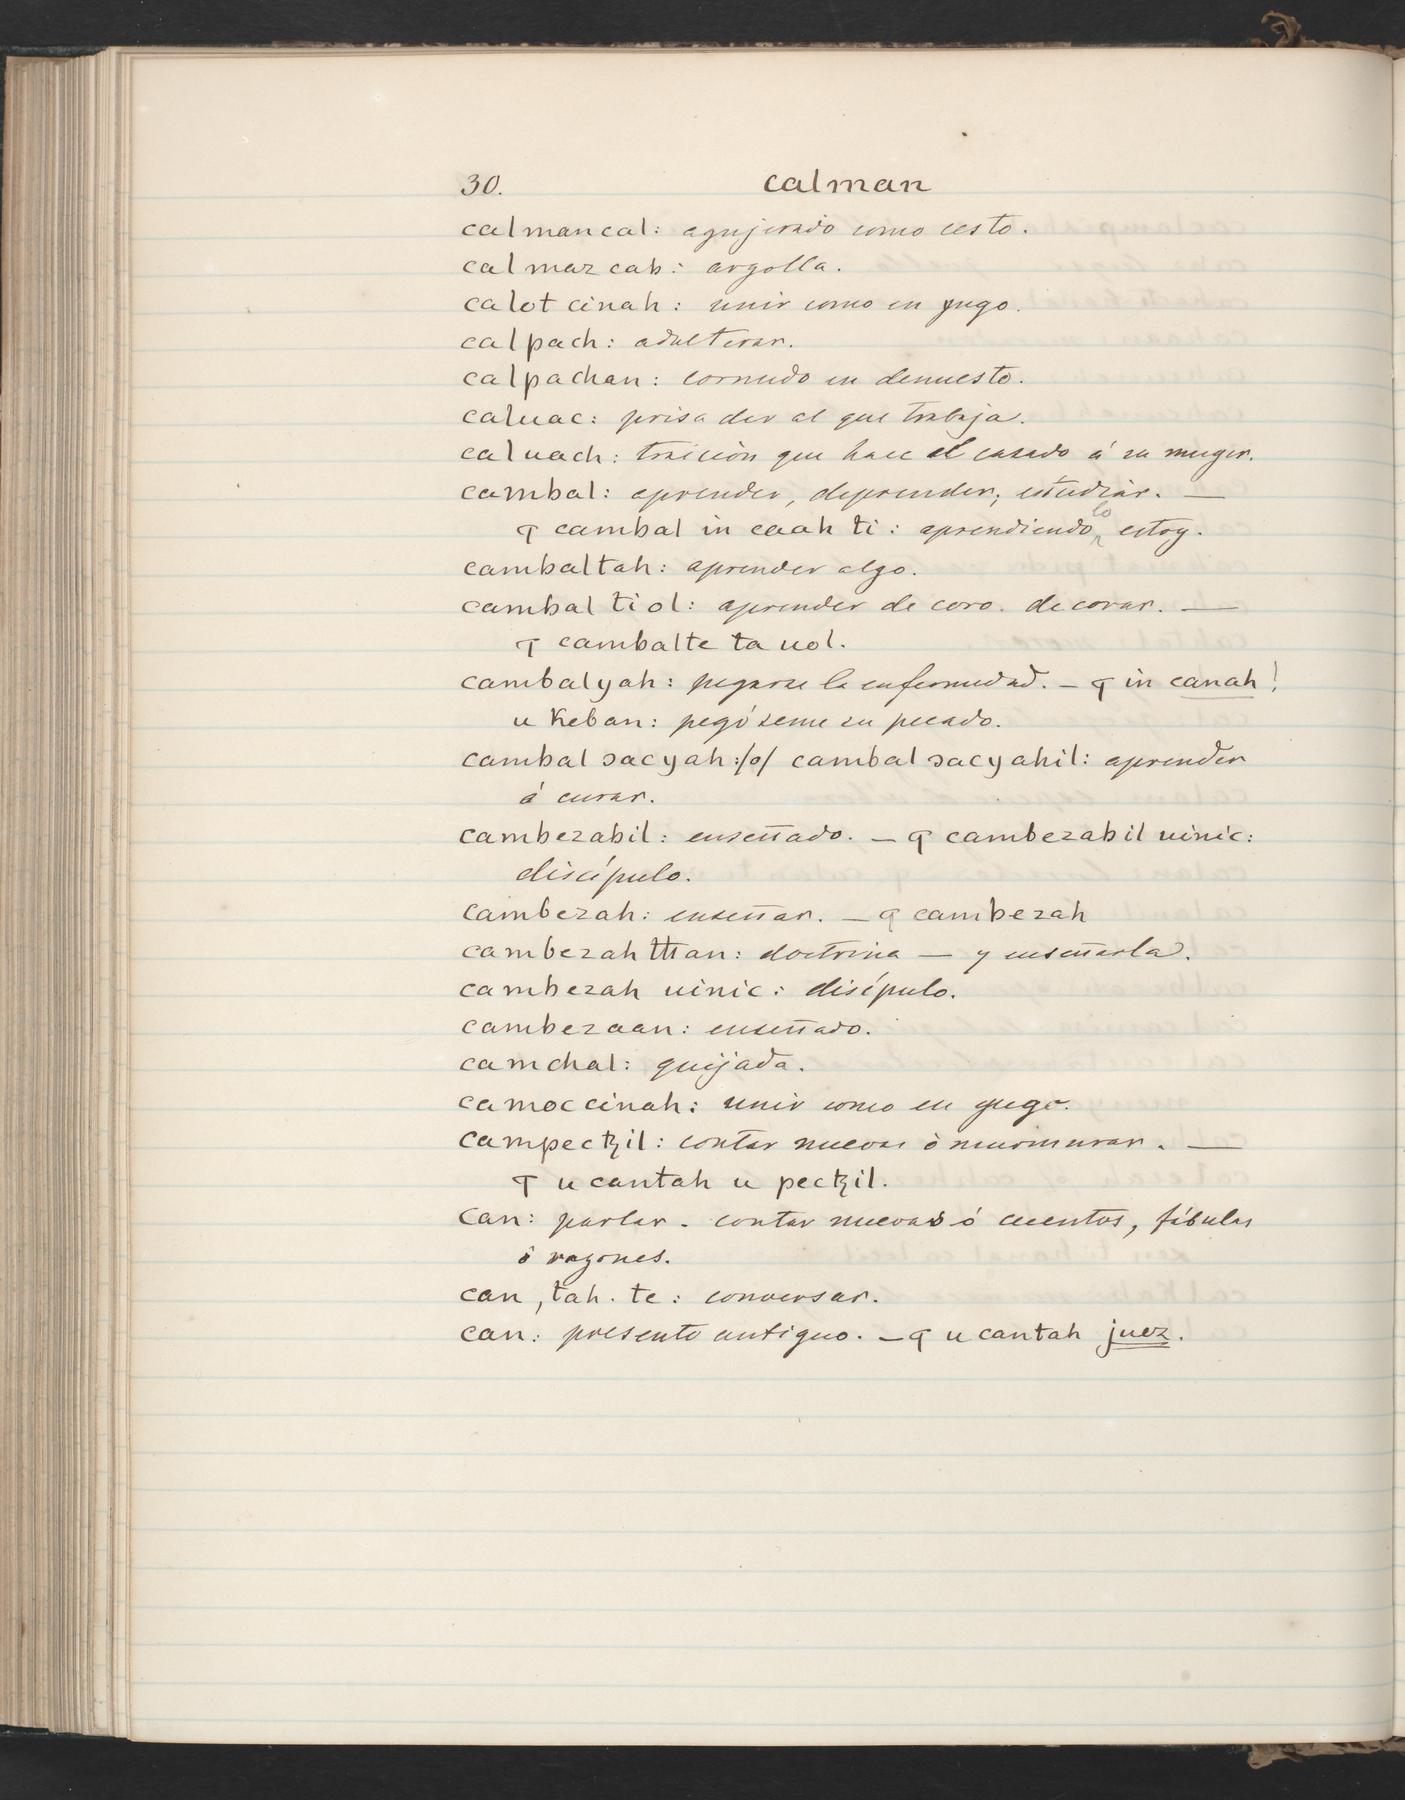 30. calman
calmancal: agujerado como cesto.
calmazcab: argolla.
calotcinah: unir como en yugo.
calpach: adulterar.
calpachan: cornudo en denuesto.
caluac: prisa der al que trabaja.
caluach: traición que hace el casado á su muger.
cambal: aprender, deprender, estudiar. —
ꟼ cambal in caah ti: aprendiendo lo estoy.
cambaltah: aprender algo.
cambal ti ol: aprender de coro. decorar. —
ꟼ cambalte ta uol.
cambalyah: pegarse la enfermedad. — ꟼ in canah!
u keban: pegóseme su pecado.
cambal ɔacyah :/o/ cambal ɔacyahil: aprender
á curar.
cambezabil: enseñado. — ꟼ cambezabil uinic:
discípulo.
cambezah: enseñar. — ꟼ cambezah
cambezah tħan: doctrina — y enseñarla.
cambezah uinic: disípulo.
cambezaan: enseñado.
camchal: quijada.
camoccinah: unir como en yugo.
campectzil: contar nuevas ò murmurar. —
ꟼ u cantah u pectzil.
can: parlar. contar nuevas ó cuentos, fábulas
ó razones.
can, tah. te: conversar.
can: presente antiguo. — ꟼ u cantah juez.